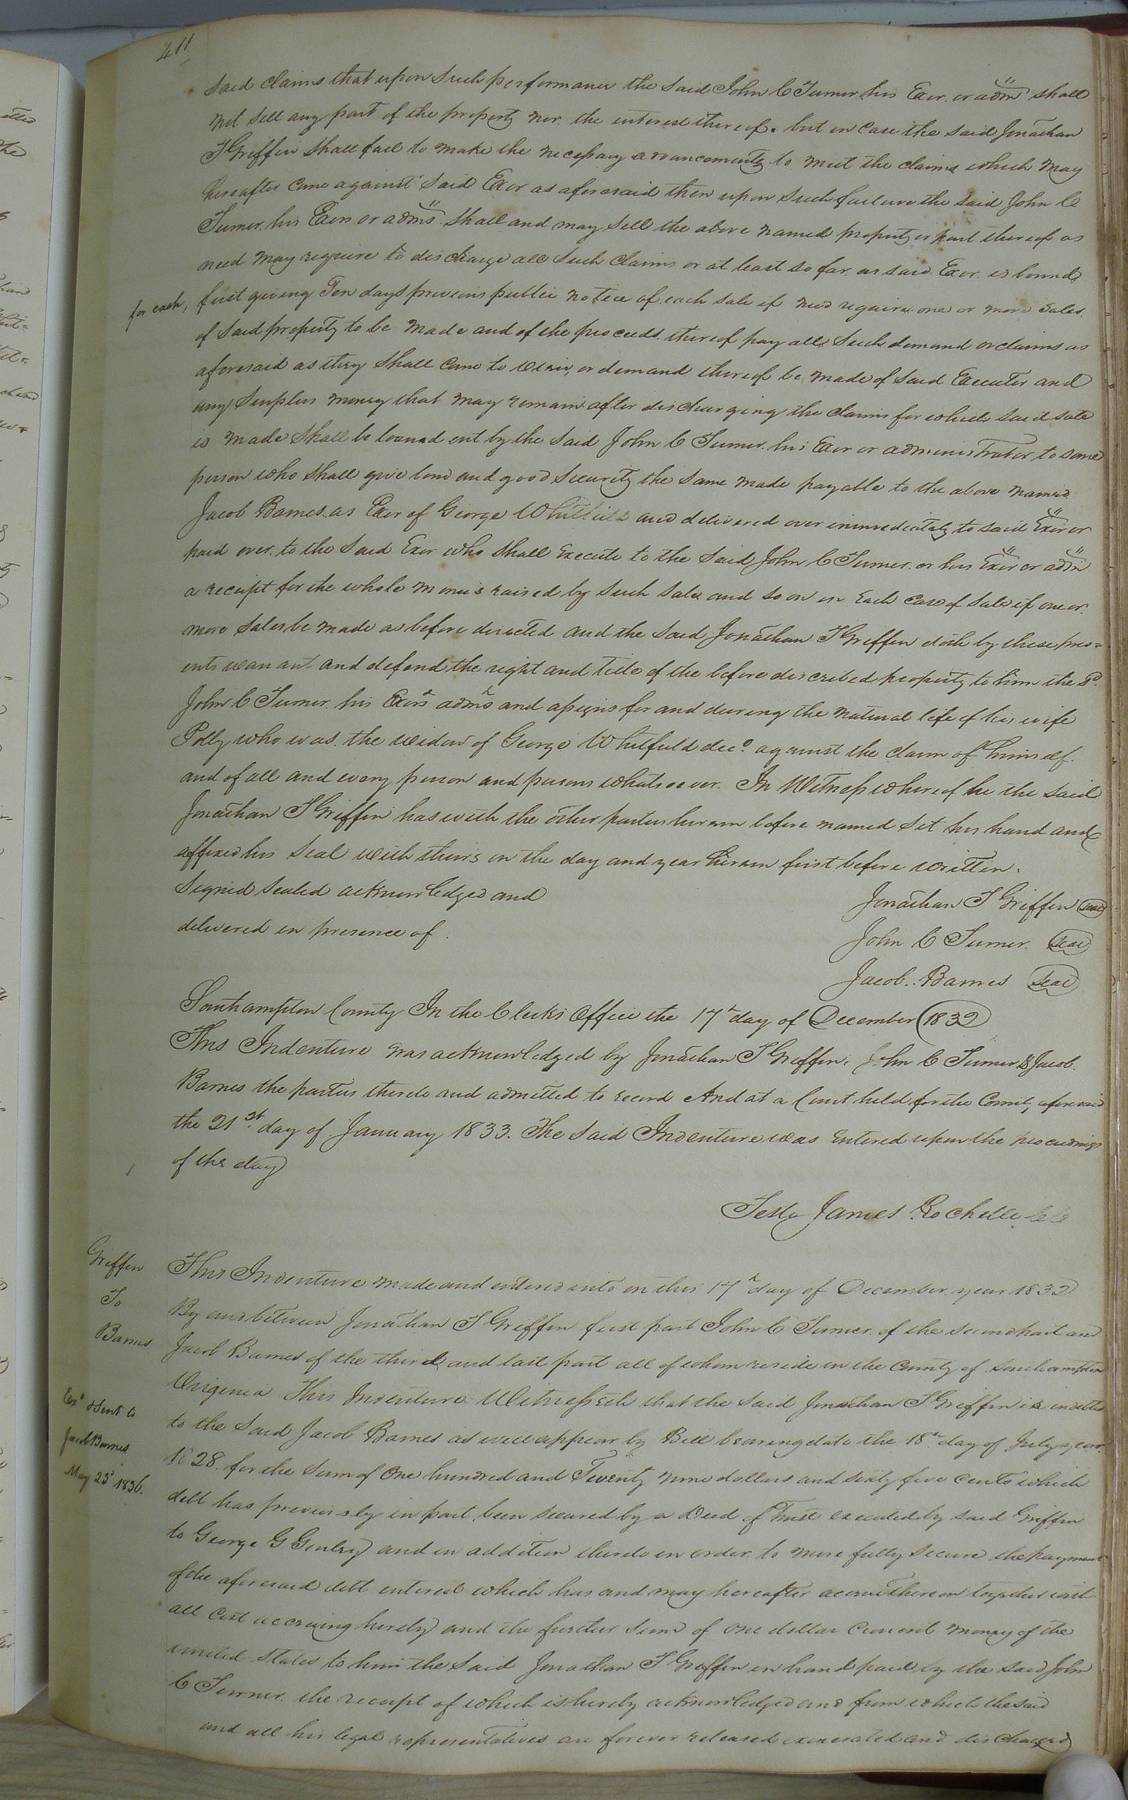 411
said claims that upon such performance the said John C Turner his Exor. or adm.r shall
not sell any part of the property nor the interest thereof. but in case the said Jonathan
T Griffin shall fail to make the necessary arrancements to meet the claims which may
hereafter come against said Exor as aforesaid then upon such failure the said John C
Turner his Exors or adm.rs shall and may sell the above named property or part thereof as
need may require to discharge all such claims or at least so far as said Exor. is bound
for cash,
first giving Ten days previous public notice of each sale if need require one or more sales
of said property to be made and of the proceeds thereof pay all such demand or claims as
aforesaid as they shall come to view, or demand thereof be made of said Executor and
any Surplus money that may remain after discharging the claims for which said sale
is made shall be loaned out by the said John C Turner his Exor or administrator, to some
person who shall give bond and good security the same made payable to the above named
Jacob Barnes as Exor of George Whitfield and delivered over immediately to said Exor or
paid over to the said Exor who shall execute to the said John C Turner or his Exor or adm.r
a receipt for the whole monies raised by such sale and so on in each case of sale if one or
more sales be made as before directed and the said Jonathan T Griffin doth by these pres=
ents warrant and defend the right and title of the before described property to him the s.d
John C Turner his Exors adm.rs and assigns for and during the natural life of his wife
Polly who was the widow of George Whitfield dec.d against the claim of himself
and of all and every person and persons whatsoever. In Witness whereof he the said
Jonathan T Griffin has with the other parties herein before named set his hand and
affixed his seal with theirs on the day and year herein first before written.
Signed sealed acknowledged and
delivered in presence of
Jonathan T Griffin Seal
John C Turner Seal
Jacob Barnes Seal
Southampton County In the Clerks Office the 17th day of December 1832
This Indenture was acknowledged by Jonathan T Griffin, John C Turner & Jacob
Barnes the parties thereto and admitted to record And at a Court held for the County aforesaid
the 21st day of January 1833. The said Indenture was entered upon the proceedings
of the day
Teste James Rochelle CC
Griffin
To
Barnes
This Indenture made and entered into on this 17th day of December year 1832
By and between Jonathan T Griffin first part John C Turner of the second part and
Jacob Barnes of the third and last part all of whom reside in the County of Southampton
Virginia This Indenture Witnesseth that the said Jonathan T Griffin is indebted
Exd & sent to
Jacob Barnes
May 23d 1836.
to the said Jacob Barnes as will appear by Bill bearing date the 18th day of July year
1828. for the sum of one hundred and Twenty nine dollars and sixty five cents which
debt has previously in part been secured by a Deed of Trust executed by said Griffin
to George G Gurley and in addition thereto in order to more fully secure the payment
of the aforesaid debt interest which has and may hereafter accrue thereon together with
all cost accruing hereby and the further sum of one dollar Current money of the
united States to him the said Jonathan T Griffin in hand paid by the said John
C Turner the receipt of which is hereby acknowledged and from which the said
and all his legal representatives are forever released exonerated and discharged